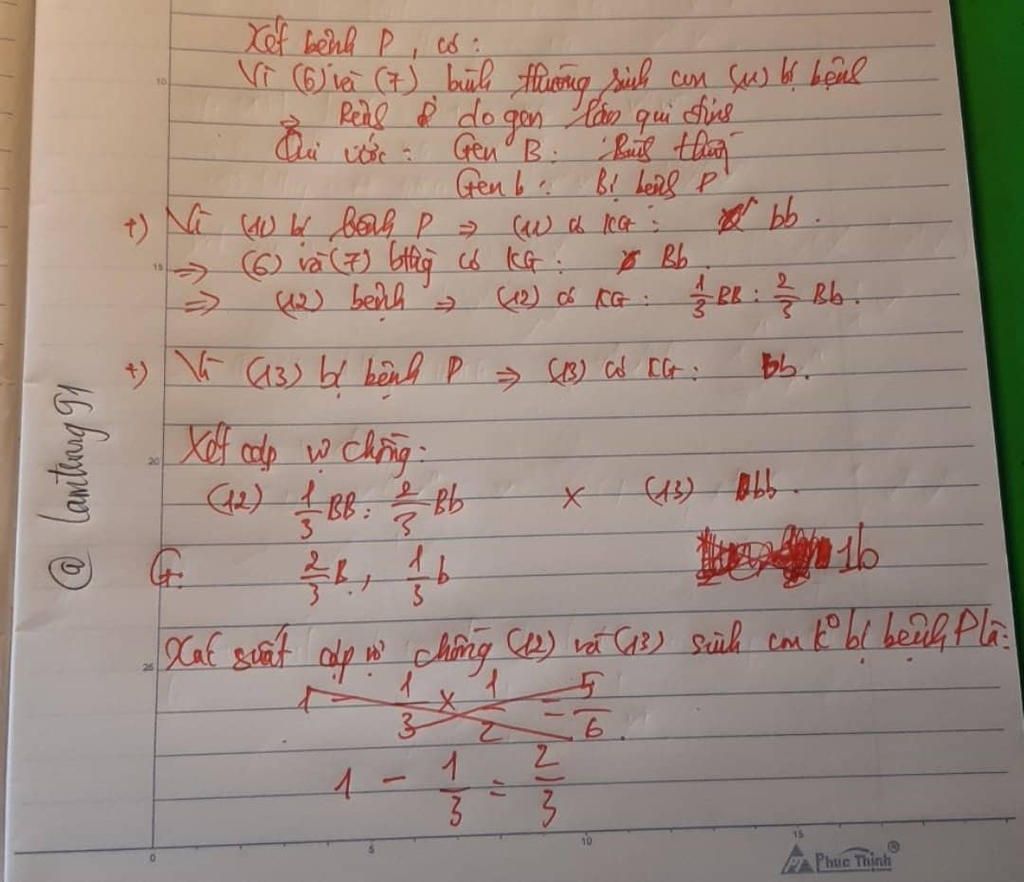 Xét bệnh P, có:
Vì (6) và (7) bình thường sinh con (11) bị bệnh
⇒ Bệnh P do gen lặn qui định
Qui ước: Gen B: Bình thường
Gen b: Bị bệnh P
+) Vì (11) bị bệnh P ⇒ (11) có KG: bb.
⇒ (6) và (7) bthg có KG: Bb.
⇒ (12) bệnh ⇒ (12) có KG: 1/3 BB : 2/3 Bb.
+) Vì (13) bị bệnh P ⇒ (13) có KG: bb.
Xét cặp vợ chồng:
(12) 1/3 BB : 2/3 Bb × (13) bb.
G: 2/3 B, 1/3 b 1b
Xác suất cặp vợ chồng (12) và (13) sinh con k° bị bệnh P là:
1 - 1/3 × 1/2 = 5/6.
1 - 1/3 = 2/3
@ lamthang91
10
15
20
25
0 5 10 15
PT Phuc Thinh®